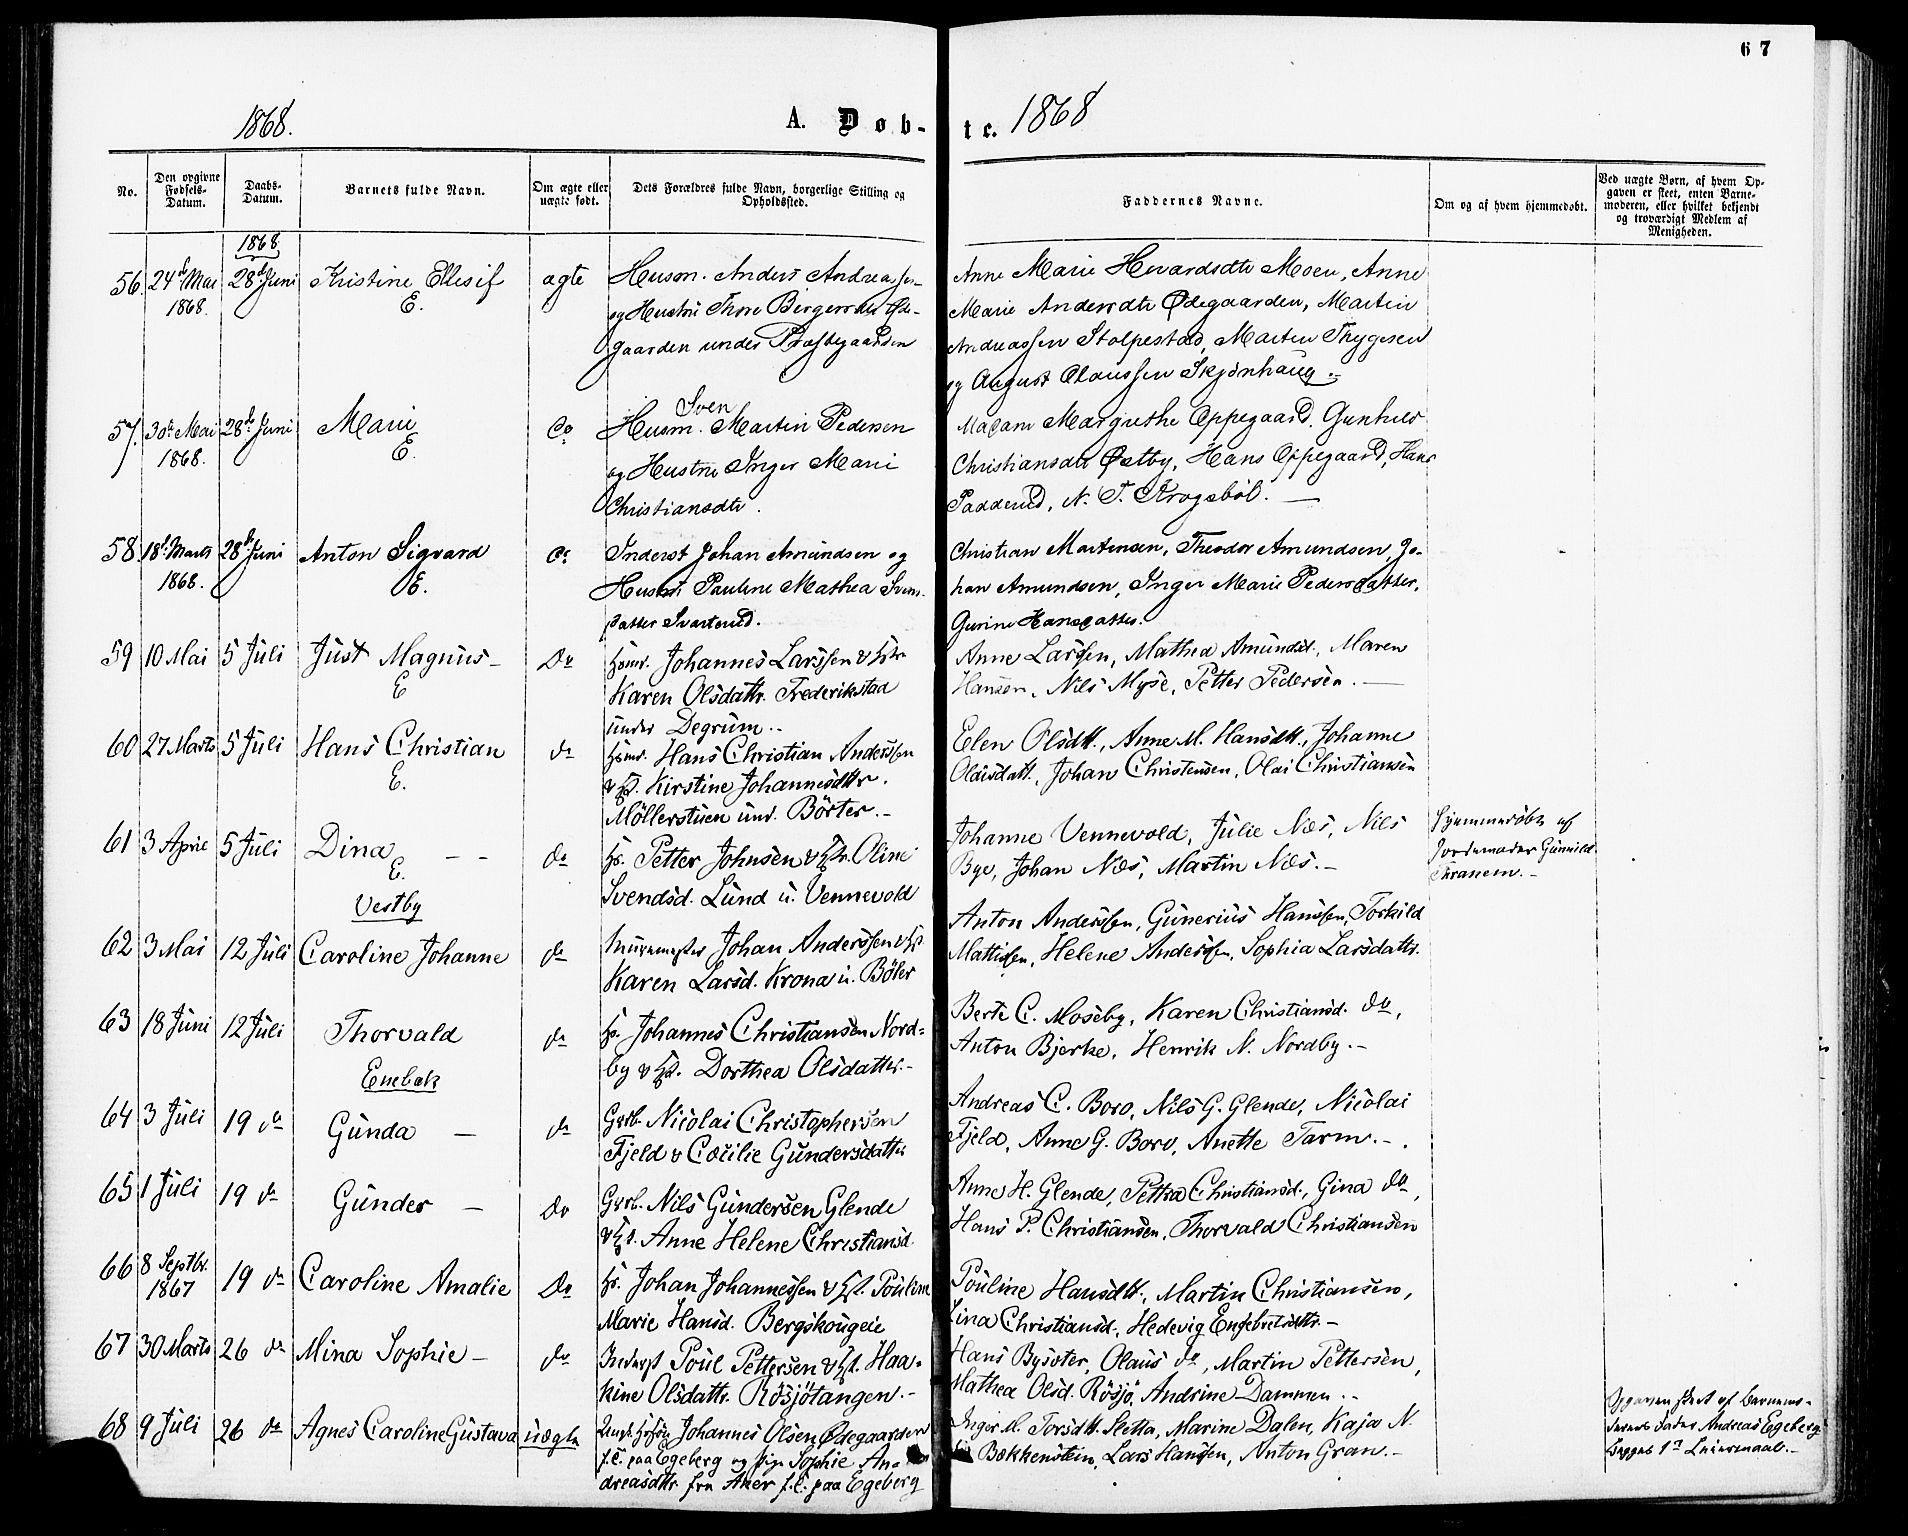 67
1868.
A. Døb-
te. 1868
No.
Den opgivne Fødsels-Datum.
Daabs-Datum.
Barnets fulde Navn.
Om ægte eller uægte født.
Dets Forældres fulde Navn, borgerlige Stilling og Opholdssted.
Faddernes Navne.
Om og af hvem hjemmedøbt.
Ved uægte Børn, af hvem Opgaven er skeet, enten Barnemoderen, eller hvilket bekjendt og troværdigt Medlem af Menigheden.
1868
56. 24d Mai 28d Juni Kristine Ellesif ægte Husm. Anders Andreassen
1868. E. og Hustru Thore Birgersdtr Øde-
gaarden under Præstegaarden
Anne Marie Hevardsdtr Moen, Anne
Marie Andersdtr Ødegaarden, Martin
Andreassen Stolpestad, Martin Thygesen
og August Olaussen Skjønhaug.-
57. 30te Mai 28d Juni Marie Do Husm. Sven Martin Pedersen
1868. E. og Hustru Inger Marie
Christiansdtr.
Madam Margrethe Oppegaard, Gunhild
Christiansdtr Østby, Hans Oppegaard, Hans
Padderud, N. T. Krogsbøl.
58. 18d Marts 28d Juni Anton Sigvard do Inderst Johan Amundsen og
1868. E. Hustru Pauline Mathea Svens-
datter Svarterud.
Christian Martensen, Theodor Amundsen, Jo-
han Amundsen, Inger Marie Pedersdatter,
Gurine Hansdatter.
59 10 Mai 5 Juli Just Magnus- Do Husm. Johannes Larssen & Hstr
E Karen Olsdattr. Frederikstad
under Degrum..
Anne Larssen, Mathea Amundsd., Maren
Hansen, Nils Myse, Petter Pedersen.
60 27 Marts 5 Juli Hans Christian do Husm. Hans Christian Anderssen
E. & Hst. Kirstine Johannesdttr.
Möllerstuen und. Börter.-
Elen Olsdtt., Anne M. Hansdtt., Johanne
Olaisdatt., Johan Christensen, Olai Christiansen
61 3 April 5 Juli Dina do Hs. Petter Johnsen & Hstr. Oline
E. Svendsd. Lund u. Vennevold
Johanne Vennevold, Julie Næs, Nils
Bye, Johan Næs, Martin Næs.-
Hjemmedøbt af
Jordemoder Gunnild
Thranem.-
Vestby
62 3 Mai 12 Juli Caroline Johanne do Muremester Johan Anderssen & Hst
Karen Larsd. Krona u. Böler
Anton Anderssen, Gunerius Hanssen, Torkild
Mattisen, Helene Anderssen, Sophia Larsdattr.
63 18 Juni 12 Juli Thorvald do Hs. Johannes Christiansen Nord-
by & Hst. Dorthea Olsdatter.-
Berte C. Moseby, Karen Christiansd. do,
Anton Bjerke, Henrik N. Nordby.-
Enebak
64 3 Juli 19 do Gunda do Grb. Nicolai Christophersen
Fjeld & Cæcilie Gundersdatter
Andreas C. Boro, Nils G. Glende, Nicolai
Fjeld, Anne G. Boro, Anette Tarm.-
65 1 Juli 19 do Gunder Do Grb. Nils Gundersen Glende
& Hst. Anne Helene Christiansd
Anne H. Glende, Petra Christiansd., Gina do,
Hans P. Christiansen, Thorvald Christiansen
66 8 Septbr. 19 do Caroline Amalie Do Hs. Johan Johannessen & Hst. Pouline
1867 Marie Hansd. Bergskougeie
Pouline Hansdtt., Martin Christiansen,
Lina Christiansd., Hedevig Engebretsdtr.-
67 30 Marts 26 do Mina Sophie- do Inderst Poul Pettersen & Hst. Haa-
kine Olsdattr. Rösjötangen.-
Hans Byseter, Olaus do, Martin Pettersen,
Mathea Olsd. Rösjö, Andrine Dammen..
68 9 Juli 26 do Agnes Caroline Gustava uægte Johannes Olsen Ødegaarden
f. C. paa Egeberg og Pige Sophie An-
dreasdttr. fra Aker f. C. paa Egeberg
Inger M. Torsdtt. Sletta, Marine Dalen, Kaja N.
Bækkensteen, Lars Hanssen, Anton Gran.-
Opgaven skeet af Barnemo-
derens Fader Andreas Egeberg
Begges 1ste Leiermaal.-